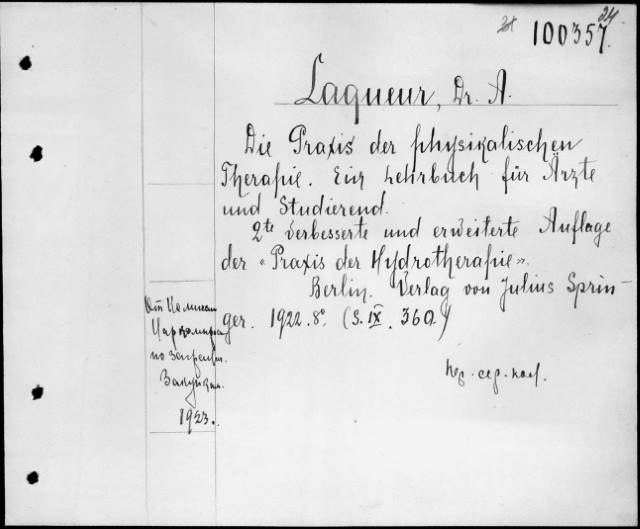 24
100357.
Laqueur, Dr. A.
Die Praxis der physikalischen
Therapie. Ein Lehrbuch für Ärzte
und Studierend.
2te verbesserte und erweiterte Auflage
der «Praxis der Hydrotherapie».
Berlin. Verlag von Julius Sprin-
ger. 1922. 8° (S. IX. 360.)
по
1923.